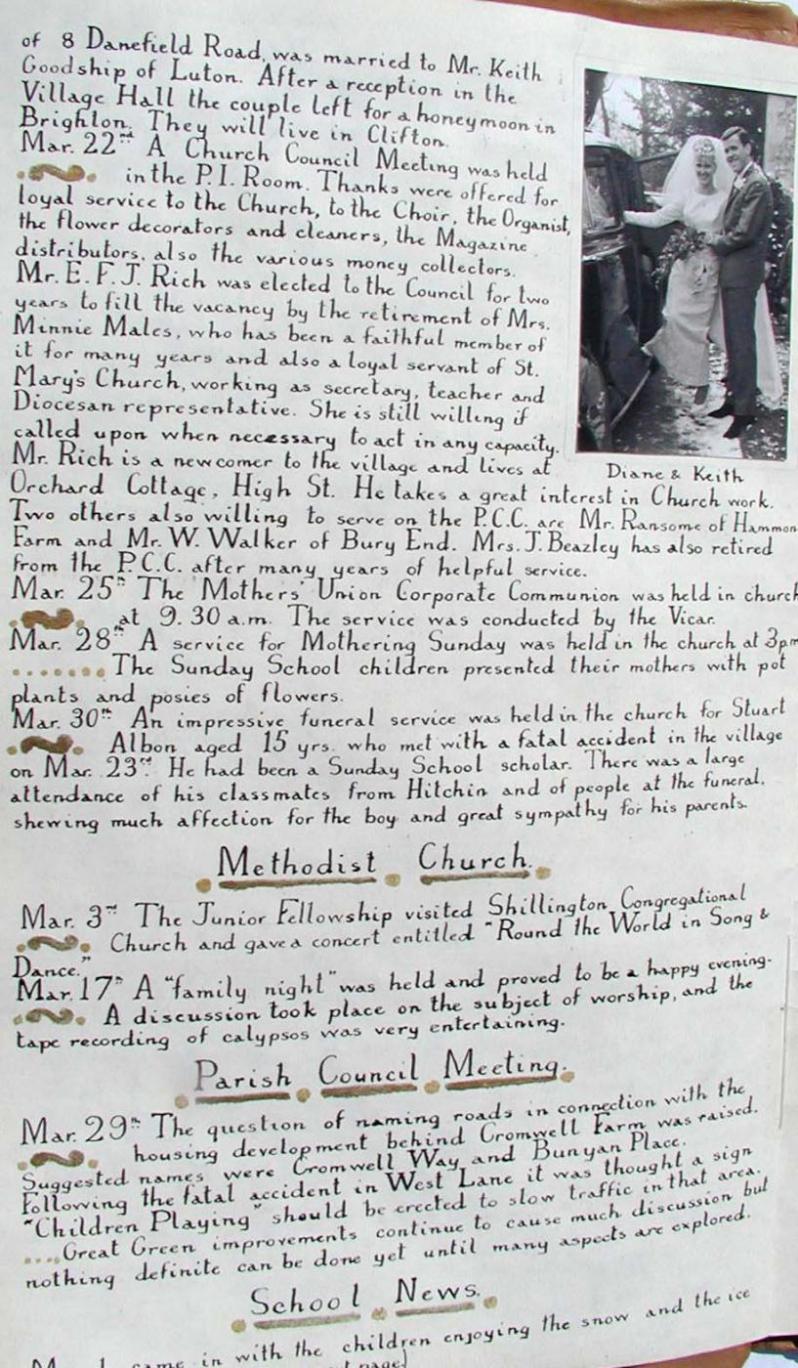 of 8 Danefield Road, was married to Mr. Keith
Goodship of Luton. After a reception in the
Village Hall the couple left for a honeymoon in
Brighton. They will live in Clifton.
Mar. 22nd A Church Council Meeting was held
in the P.I. Room. Thanks were offered for
loyal service to the Church, to the Choir, the Organist,
the flower decorators and cleaners, the Magazine
distributors, also the various money collectors.
Mr. E. F. J. Rich was elected to the Council for two
years to fill the vacancy by the retirement of Mrs.
Minnie Males, who has been a faithful member of
it for many years and also a loyal servant of St.
Mary's Church, working as secretary, teacher and
Diocesan representative. She is still willing if
called upon when necessary to act in any capacity.
Mr. Rich is a newcomer to the village and lives at
Diane & Keith
Orchard Cottage, High St. He takes a great interest in Church work.
Two others also willing to serve on the P.C.C. are Mr. Ransome of Hammon
Farm and Mr. W. Walker of Bury End. Mrs. J. Beazley has also retired
from the P.C.C. after many years of helpful service.
Mar. 25th The Mothers' Union Corporate Communion was held in church
at 9.30 a.m. The service was conducted by the Vicar.
Mar. 28th A service for Mothering Sunday was held in the church at 3pm
....... The Sunday School children presented their mothers with pot
plants and posies of flowers.
Mar. 30th An impressive funeral service was held in the church for Stuart
Albon aged 15 yrs. who met with a fatal accident in the village
on Mar. 23rd. He had been a Sunday School scholar. There was a large
attendance of his classmates from Hitchin and of people at the funeral,
shewing much affection for the boy and great sympathy for his parents.
Methodist Church.
Mar. 3rd The Junior Fellowship visited Shillington Congregational
Church and gave a concert entitled "Round the World in Song &
Dance."
Mar. 17th A "family night" was held and proved to be a happy evening.
A discussion took place on the subject of worship, and the
tape recording of calypsos was very entertaining.
Parish Council Meeting.
Mar. 29th The question of naming roads in connection with the
housing development behind Cromwell Farm was raised.
Suggested names were Cromwell Way and Bunyan Place.
Following the fatal accident in West Lane it was thought a sign
"Children Playing" should be erected to slow traffic in that area.
.... Great Green improvements continue to cause much discussion but
nothing definite can be done yet until many aspects are explored.
School News.
came in with the children enjoying the snow and the ice
page]